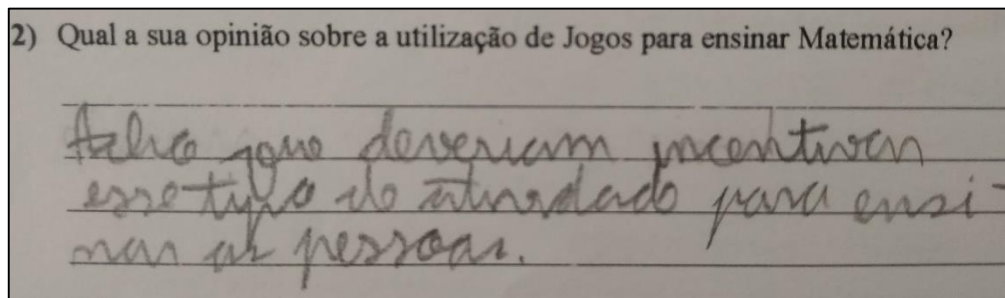 2) Qual a sua opinião sobre a utilização de Jogos para ensinar Matemática?
Acho que deveriam incentivar
esse tipo de atividade para ensi-
nar as pessoas.